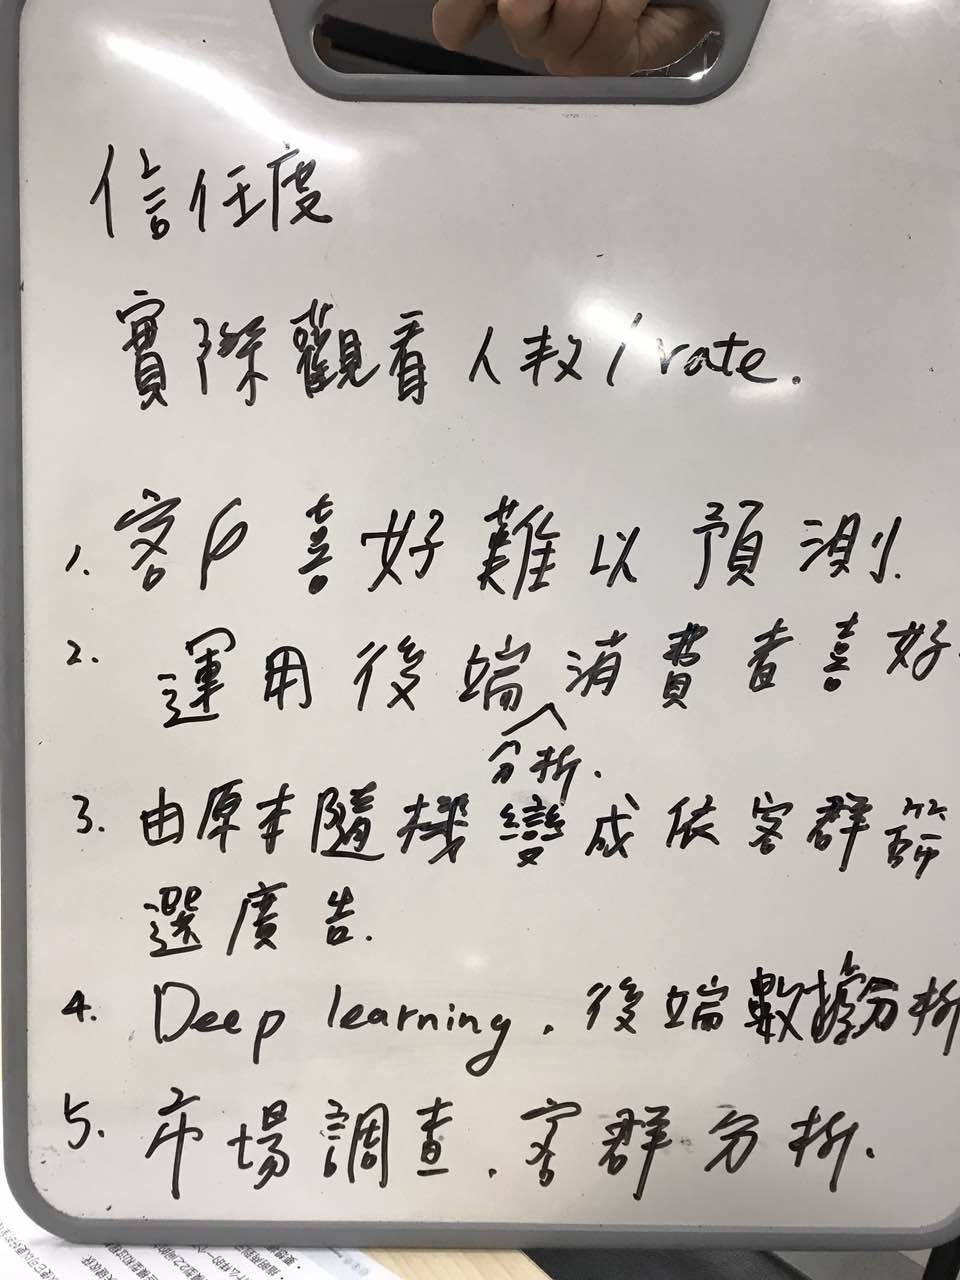 信任度
實際觀看人数/rate.
1. 客戶喜好難以預測.
2. 運用後端消費者喜好
分析.
3. 由原本隨機變成依客群篩
選廣告.
4. Deep learning. 後端數據分析
5. 市場調查. 客群分析.